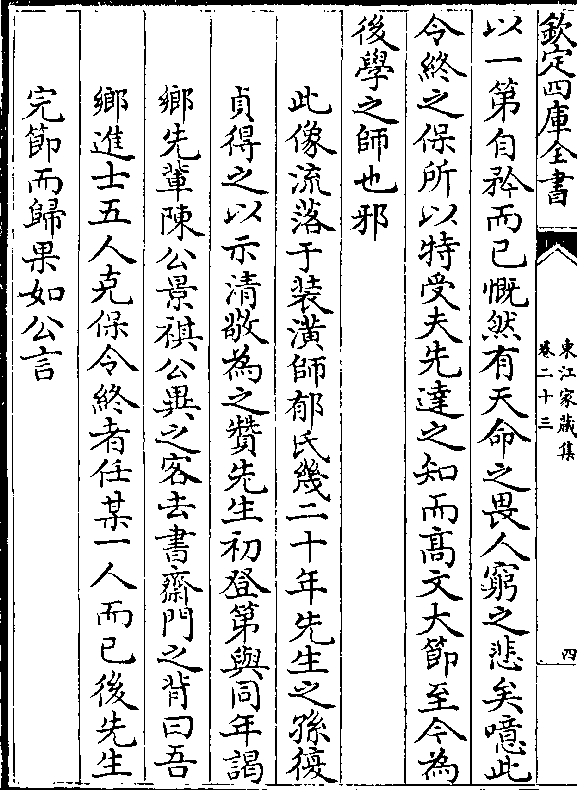 欽定四庫全書
東江家藏集
卷二十三
四
以一第自矜而已慨然有天命之畏人窮之悲矣噫此
令終之保所以特受夫先達之知而髙文大節至今為
後學之師也邪
此像流落于装潢師郁氏幾二十年先生之孫復
貞得之以示清敬為之贊先生初登第與同年謁
鄉先輩陳公景祺公異之客去書齋門之背曰吾
鄉進士五人克保令終者任某一人而已後先生
完節而歸果如公言